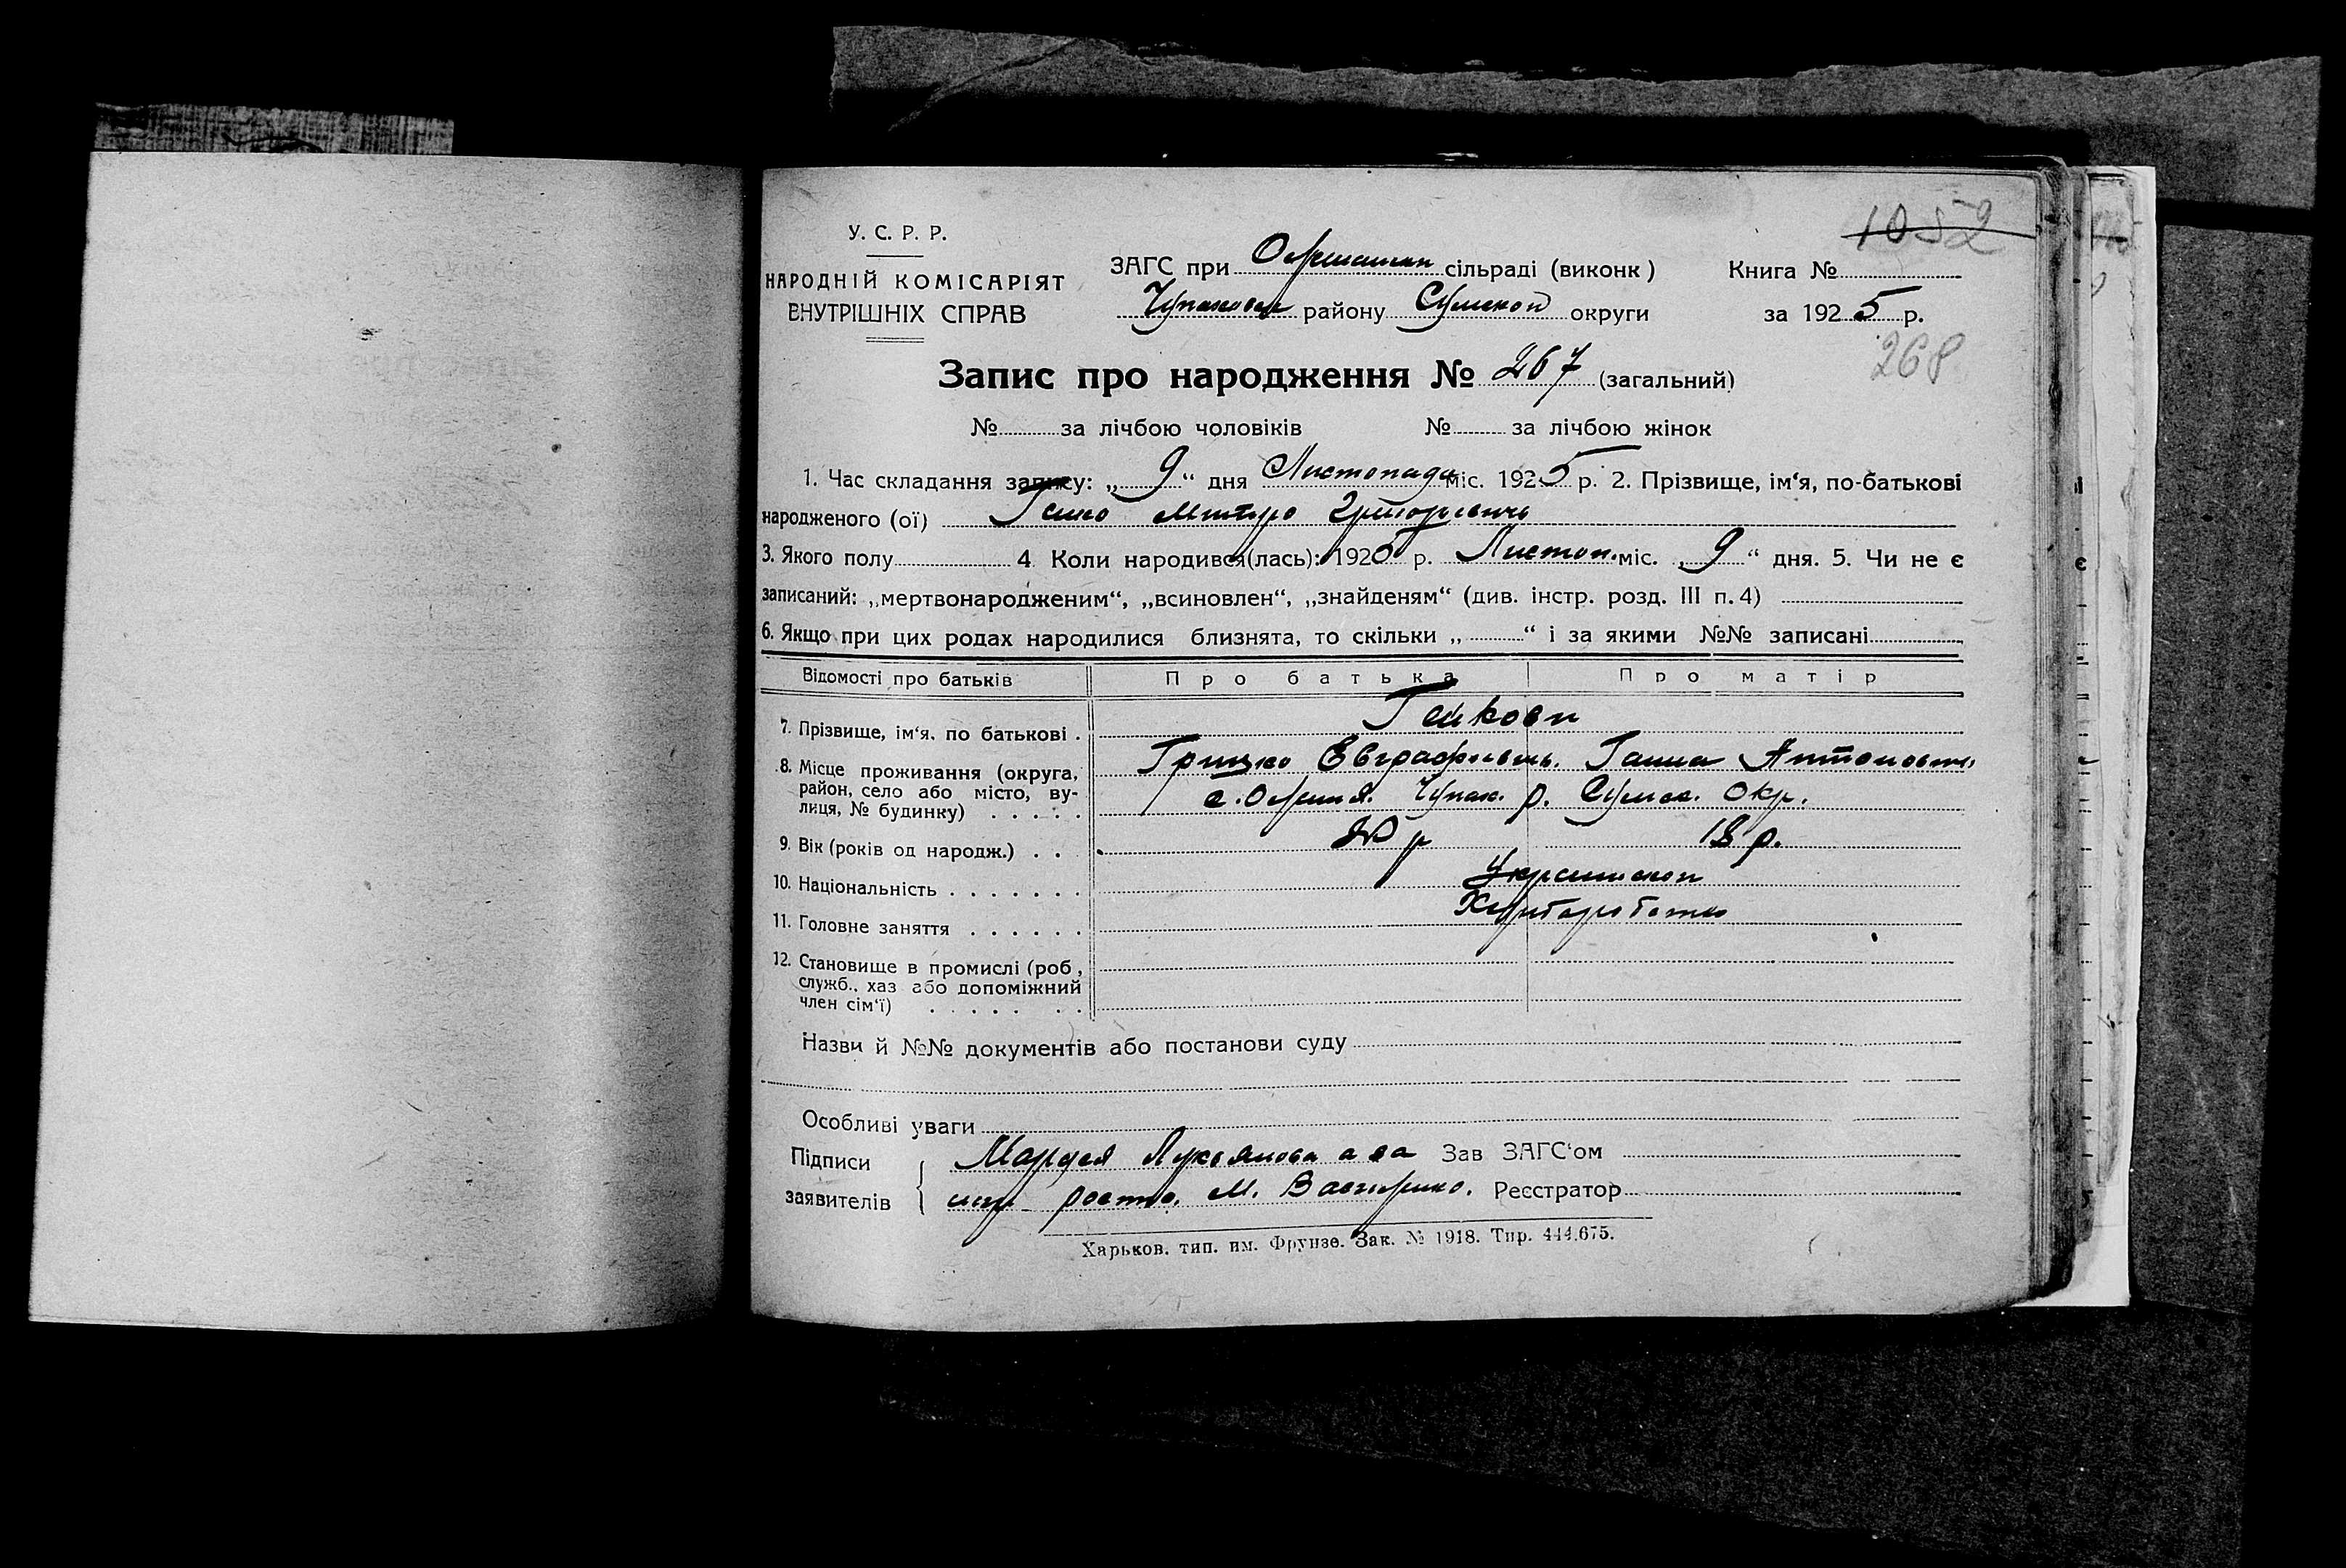 1052
У. С. Р. Р.
НАРОДНІЙ КОМІСАРІЯТ
ВНУТРІШНІХ СПРАВ
ЗАГС при сільраді (виконк)
району Сумской округи
Книга №
за 1925 р.
268
Запис про народження № 267 (загальний)
№ за лічбою чоловіків № за лічбою жінок
1. Час складання запису: „ 9 “ дня Листопада міс. 1925 р. 2. Прізвище, ім‘я, по-батькові
народженого (ої) Митро Григорьевичь
3. Якого полу 4. Коли народився(лась): 1925 р. Листоп. міс. „ 9 “ дня. 5. Чи не є
записаний: „мертвонародженим“, „всиновлен“, „знайденям“ (див. інстр. розд. III п. 4)
6. Якщо при цих родах народилися близнята, то скільки „ “ і за якими №№ записані
Відомості про батьків Про батька Про матір
7. Прізвище, ім‘я, по батькові . Гейкови
Грицко Евграфиевичь. Ганна Антоновна
8. Місце проживання (округа,
район, село або місто, ву-
лиця, № будинку) . . . . . Чупах. р. Сумск. Окр.
9. Вік (років од народж.) . . 20 р 18 р.
10. Національність . . . . . . . Украинской
11. Головне заняття . . . . . .
12. Становище в промислі (роб.,
служб., хаз або допоміжний
член сім‘ї) . . . . . . .
Назви й №№ документів або постанови суду
Особливі уваги
Підписи
заявителів
Лукьянова а за Зав ЗАГС‘ом
М. Реєстратор
Харьков. тип. им. Фрунзе. Зак. № 1918. Тир. 444.675.